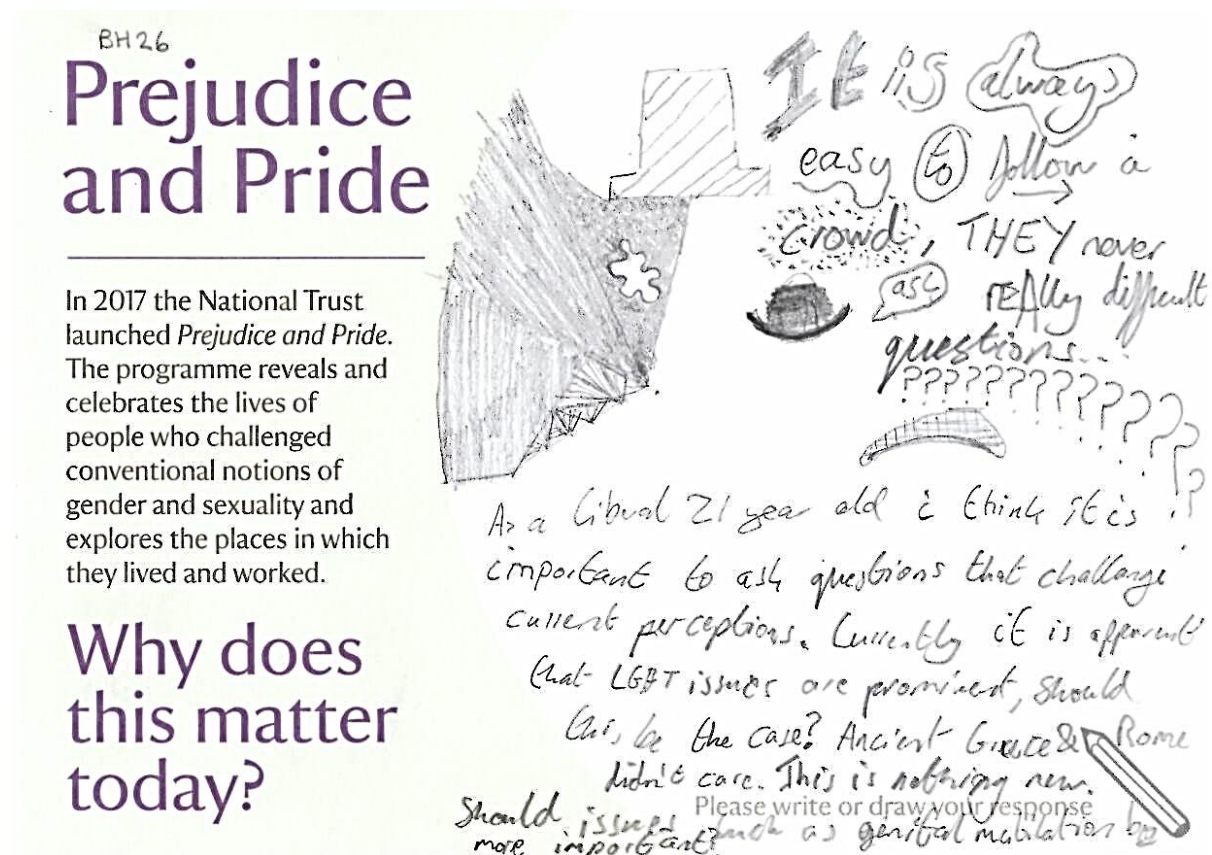 BH26
Prejudice
and Pride
In 2017 the National Trust
launched Prejudice and Pride.
The programme reveals and
celebrates the lives of
people who challenged
conventional notions of
gender and sexuality and
explores the places in which
they lived and worked.
Why does
this matter
today?
It is always
easy to follow a
crowd, THEY never
ask REAlly difficult
questions...
??????????????
As a liberal 21 year old i think it is
important to ask questions that challange
current perceptions. Currently it is apparent
that LGBT issues are prominent, should
this be the case? Ancient Greece & Rome
didn't care. This is nothing new.
Please write or draw your response
Should issues such as genital mutilation be
more important?